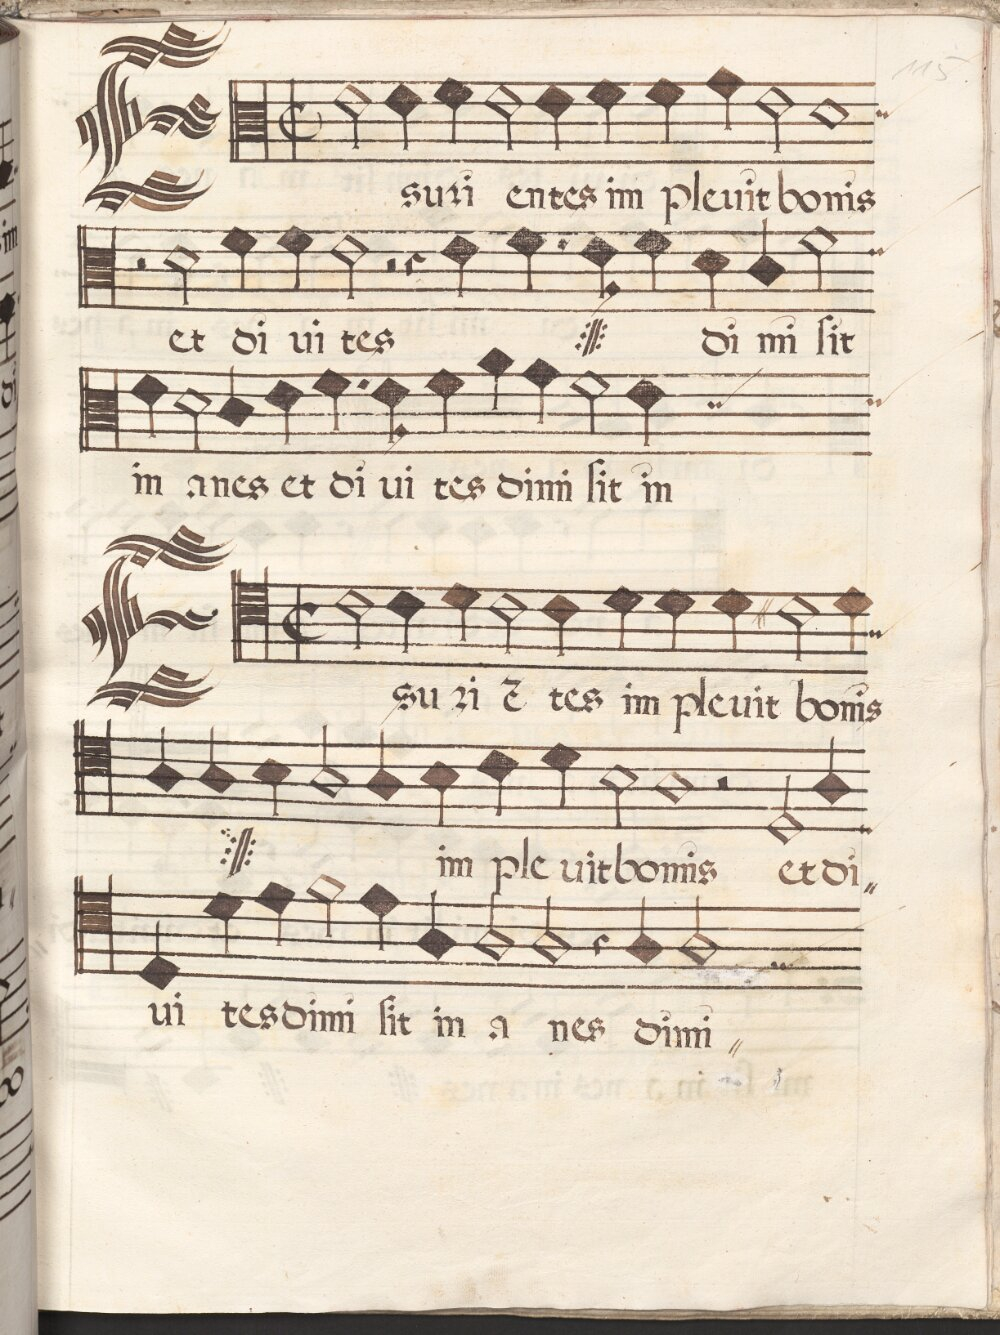 115
Esuri entes im pleuit bonis
et di ui tes di mi sit
in anes et di ui tes dimi sit in
Esu ri ē tes im pleuit bonis
im ple uit bonis et di
ui tes dimi sit in a nes dimi